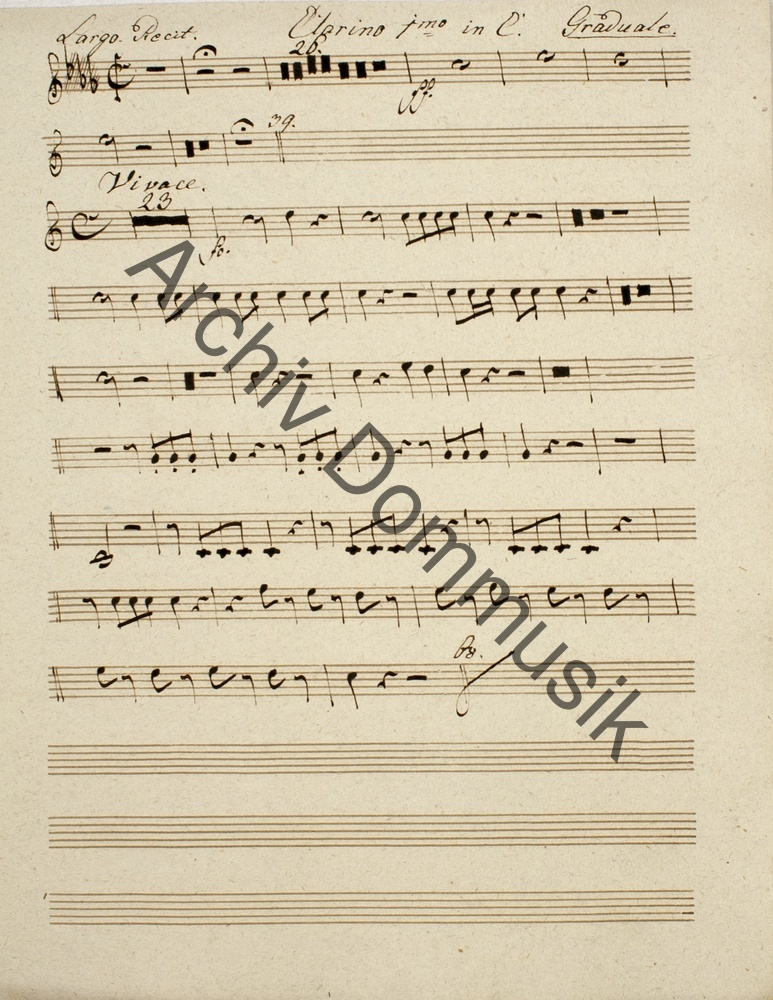 Largo. Recit. Clarino 1mo in C. Graduale.
26.
pp.
39.
Vivace.
23
fo.
68.
Archiv Dommusik